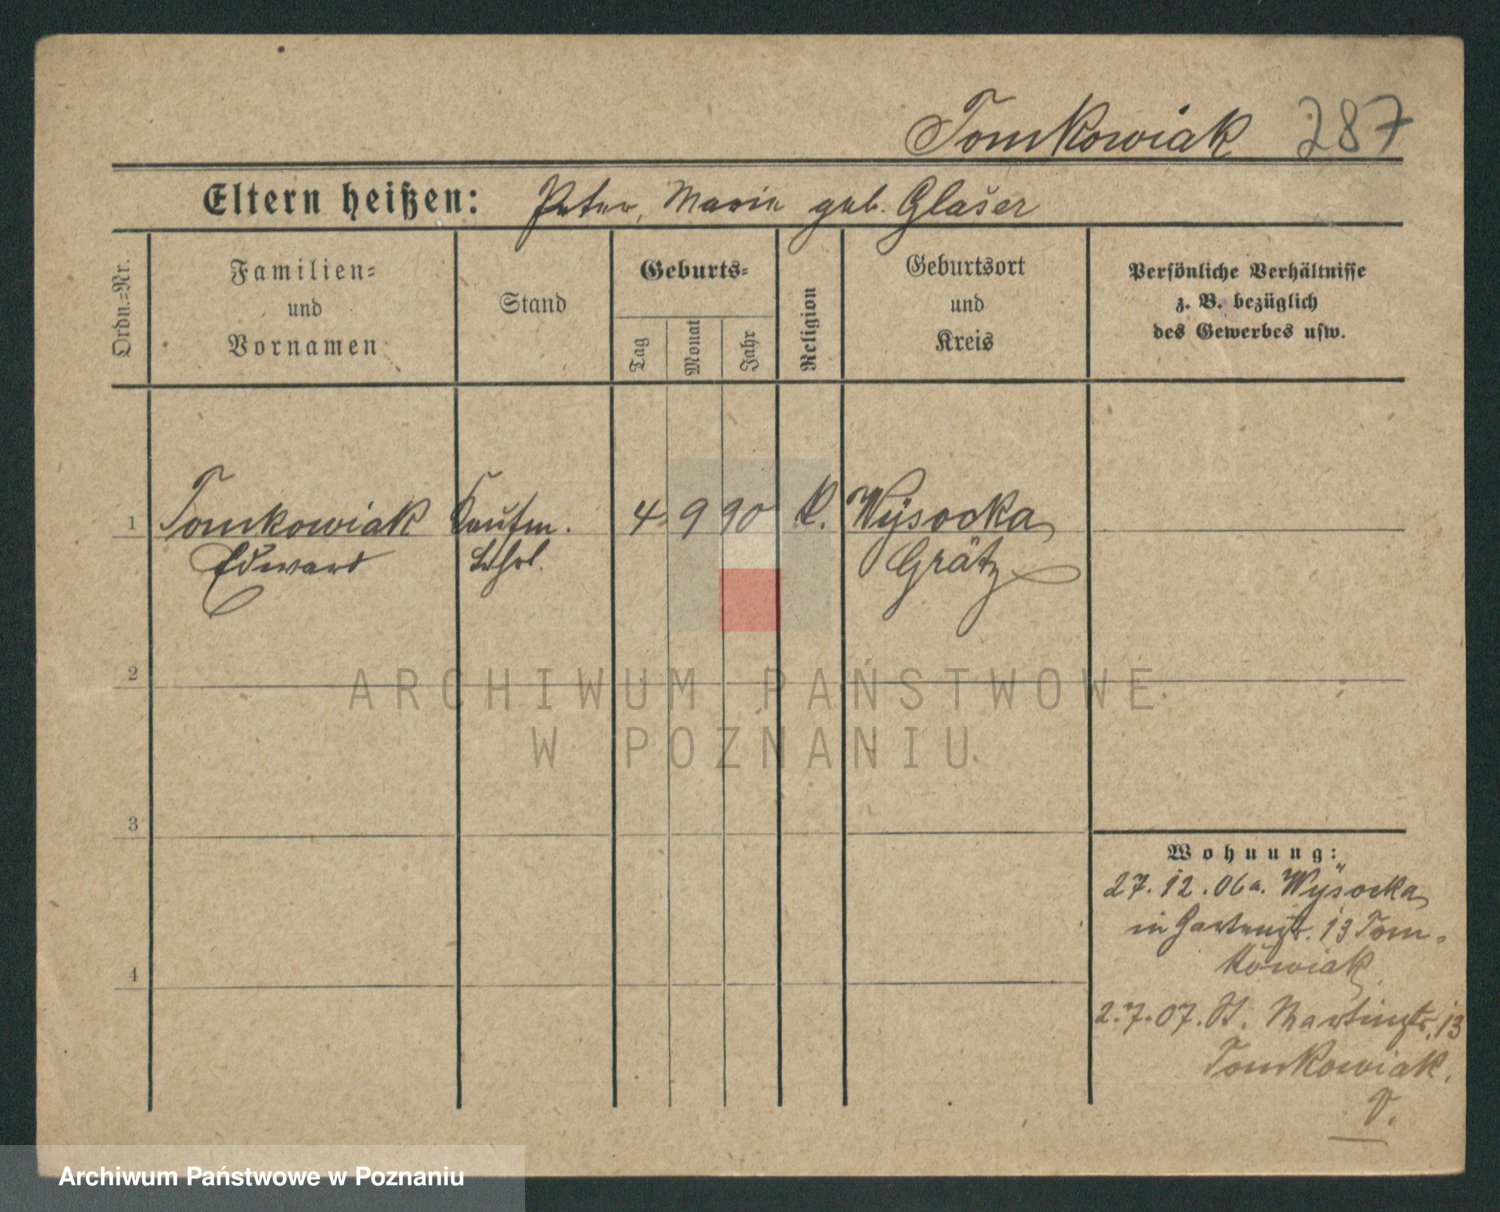 Tomkowiak 287
Eltern heißen: Peter, Marie geb. Glaser
Ordn.-Nr.
Familien-
und
Vornamen
Stand
Geburts-
Tag
Monat
Jahr
Religion
Geburtsort
und
Kreis
Persönliche Verhältnisse
z. B. bezüglich
des Gewerbes usw.
1 Tomkowiak Kaufm. 4 9 90 k. Wysocka
Edward Lehrl. Grätz
2
3
4
Wohnung:
27. 12. 06 a. Wysocka
in Gartenstr. 13 Tom-
kowiak
2. 7. 07. St. Martinstr. 13
Tomkowiak.
V.
ARCHIWUM PAŃSTWOWE
W POZNANIU
Archiwum Państwowe w Poznaniu